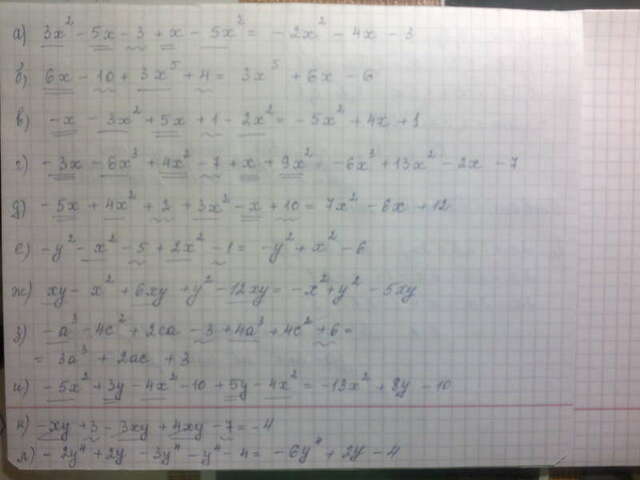 а) 3x² - 5x - 3 + x - 5x² = - 2x² - 4x - 3
б) 6x - 10 + 3x⁵ + 4 = 3x⁵ + 6x - 6
в) -x - 3x² + 5x + 1 - 2x² = - 5x² + 4x + 1
г) - 3x - 6x³ + 4x² - 7 + x + 9x² = -6x³ + 13x² - 2x - 7
д) - 5x + 4x² + 2 + 3x² - x + 10 = 7x² - 6x + 12
е) -y² - x² - 5 + 2x² - 1 = -y² + x² - 6
ж) xy - x² + 6xy + y² - 12xy = -x² + y² - 5xy
з) -a³ - 4c² + 2ca - 3 + 4a³ + 4c² + 6 =
= 3a³ + 2ac + 3
и) - 5x² + 3y - 4x² - 10 + 5y - 4x² = -13x² + 8y - 10
к) -xy + 3 - 3xy + 4xy - 7 = -4
л) - 2y⁴ + 2y - 3y⁴ - y⁴ - 4 = - 6y⁴ + 2y - 4